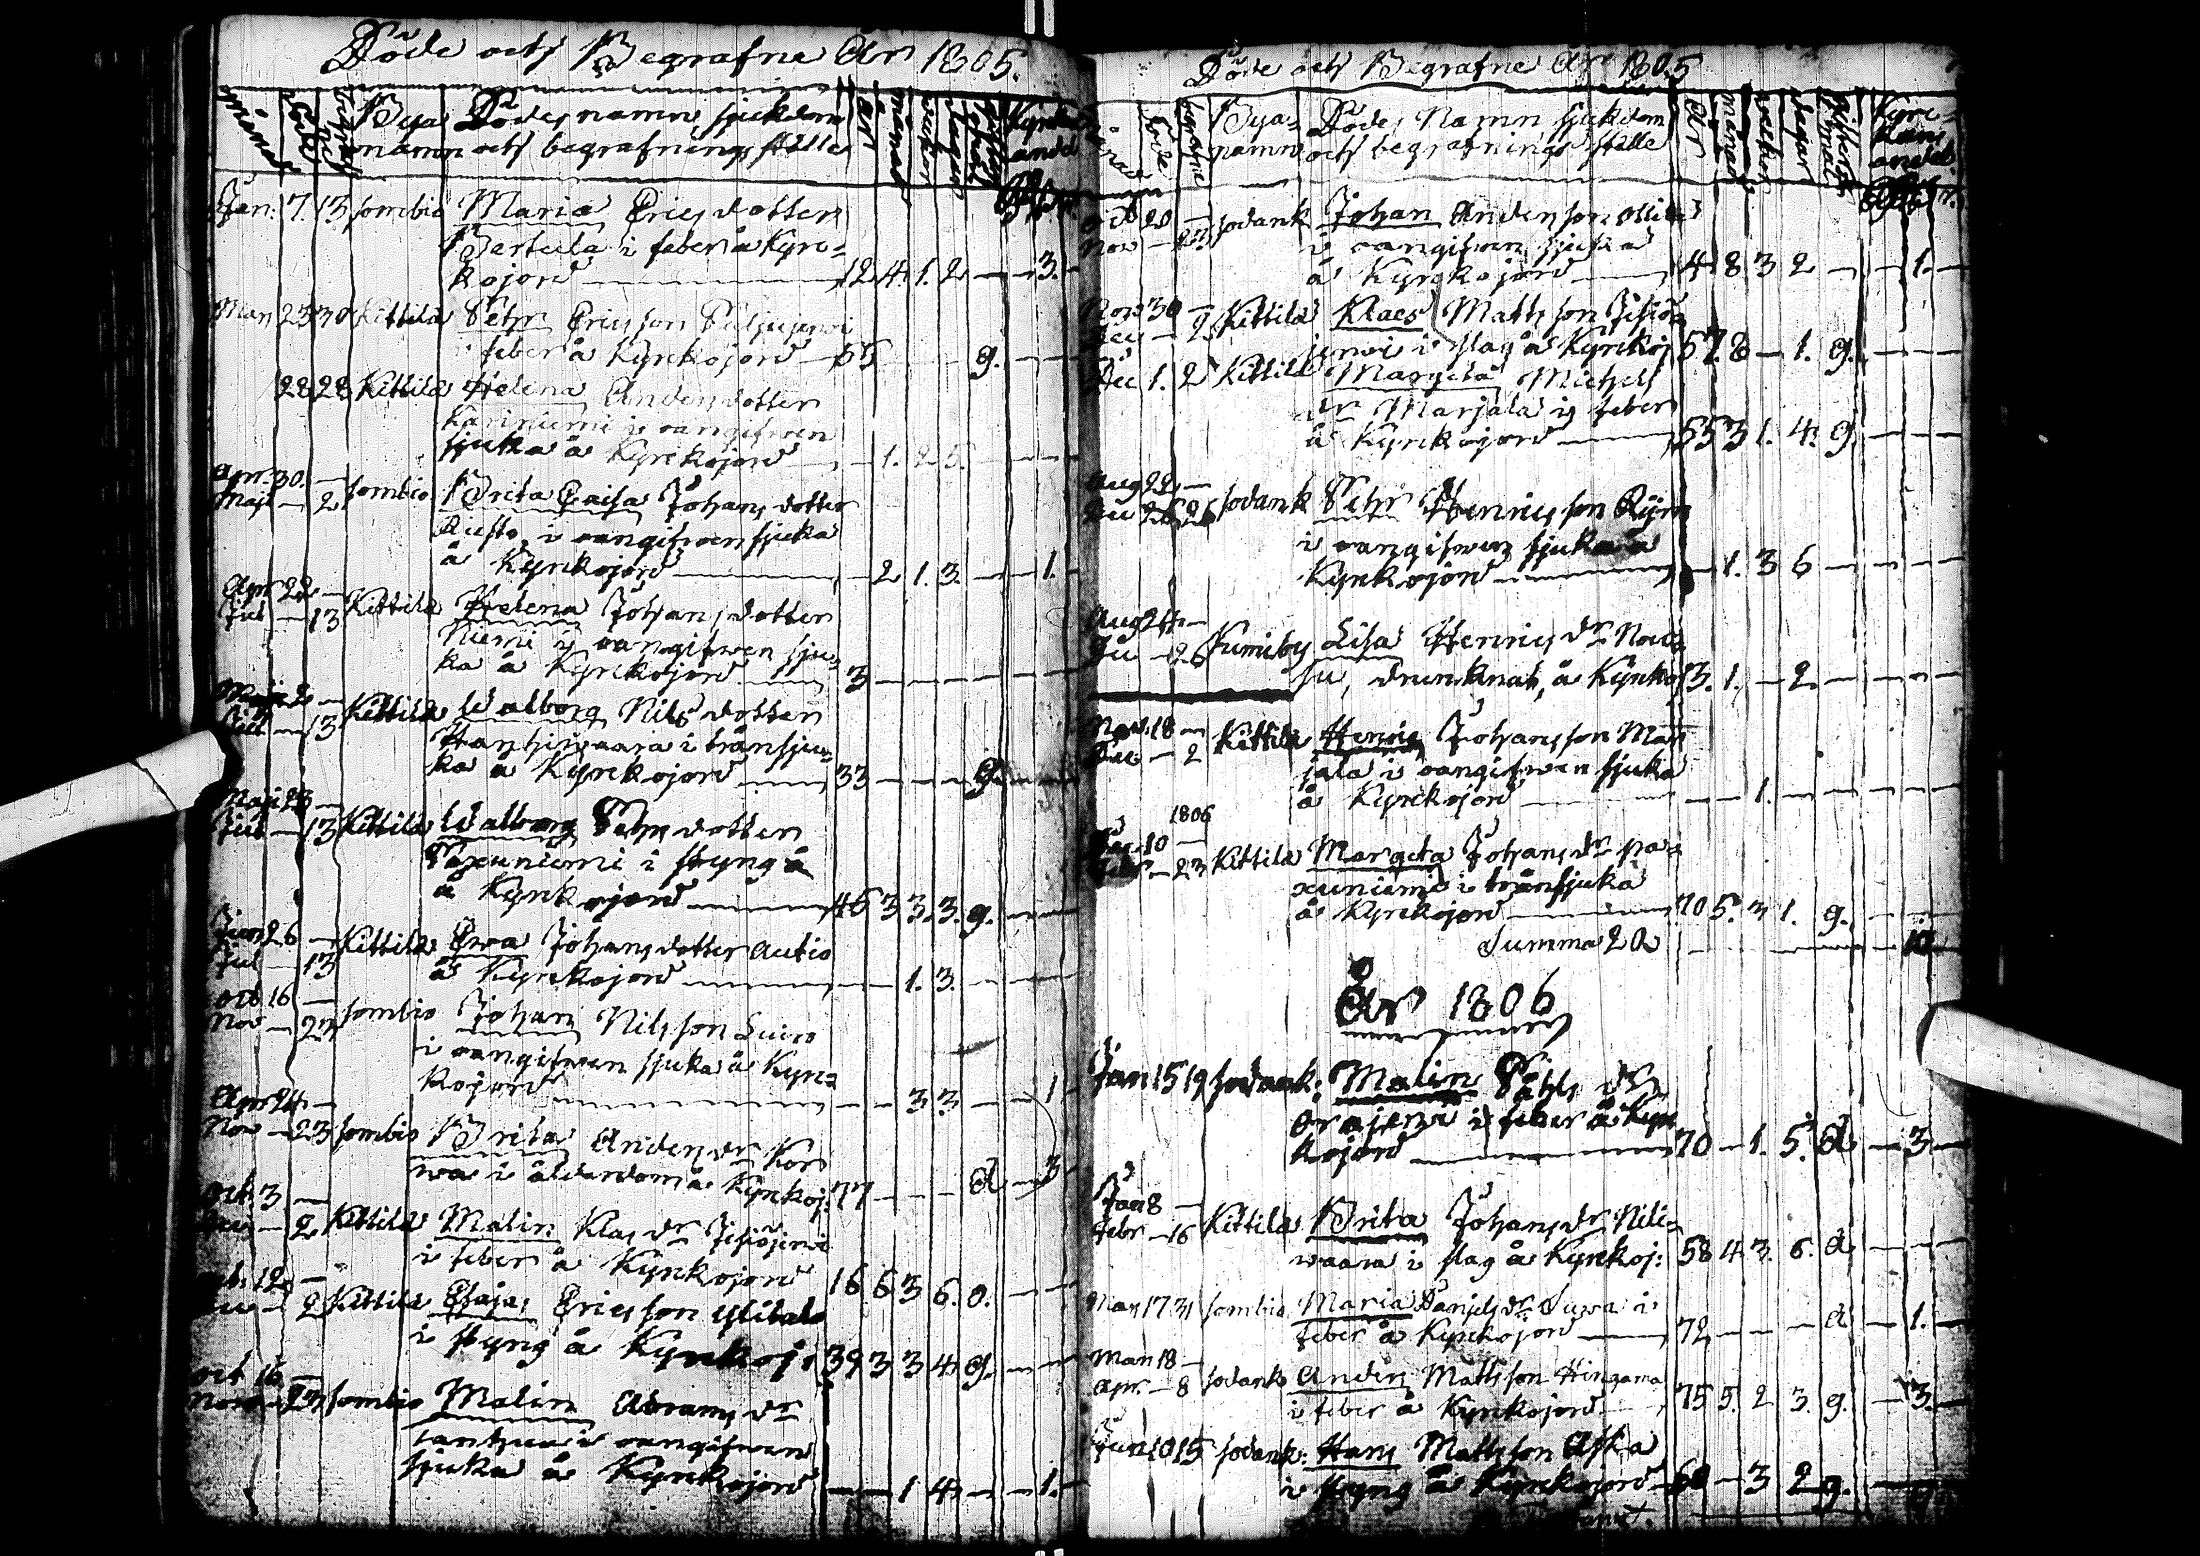 Döde och Begrafne År 1805.
månad Döde Begrafne Bya namn Dödes namn sjukdom och begrafnings ställe år månad veckor dagar Kyrckans andel
Jan: 7. 13 sombio Maria Erics dotter
Bertula i feber å Kyrc=
kojord 12 4 1. 2 — — 3. —
Mars 25 30 Kittilä Petr Ericsson Puljujerwi
i feber å Kyrckojord — 55 g. — —
28 28 Kittilä Helena Anders dotter
Kariniemi i oangifwen
sjuka å Kyrckojord — — 1. 2 5. — — —
Apr. 30. —
Maji — 2 sombio Brita Caisa Johans dotter
Riesto, i oangifwen sjuka
å Kyrckojord — — 2 1. 3. — — 1. —
Apr 22 —
Jul — 13 Kittilä Helena Johans dotter
Niemi i oangifwen sju=
ka å Kyrckojord — 3 — — — —
Maji 2 —
Jul — 13 Kittilä Walborg Nils dotter
i trånsju=
ka å Kyrckojord — 33 — — — g. — —
Maji 23 —
Jul — 13 Kittilä Walborg Petrs dotter
Paxuniemi i styng å
å Kyrckojord — 46 3 3. 3. g. — —
Jun 26 —
Jul — 13 Kittilä Ewa Johans dotter Autio
å Kyrckojord — — — 1. 3. — — —
Oct 16 —
Nov — 23 sombio Johan Nils son Luiro
i oangifwen sjuka å Kyrc=
kojord — — — 3 3. — — 1 —
Apr 24 —
Nov — 23 sombio Brita Anders dr Kor
wa i ålderdom å Kyrckoj: 77 — — — d — 3
Oct. 3 —
— 2 Kittilä Malin Klas dr Jesiöjerwi
i feber å Kyrckojord 16 6 3 6. o. — —
12 —
— 2 Kittilä Esajas Ericsson Ylitalo
i styng å Kyrckoj: 39 3 3 4. g. — —
Oct 16 —
Nov — 23 sombio Malin Abrams dr
i oangifwen
sjuka å Kyrckojord — — 1 4. — — 1. —
Döde och Begrafne År 1805
Döde begrafne Bya= namn Dödes Namn sjukdom och begrafnings ställe år månad veckor dagar Kyrc= kans andel
Oct 20 —
Nov — 23 sodank Johan Anderson Ollila
i oangifwen sjuka
å Kyrckojord — 4 8 3 2 — — 1. —
Nov 30 —
Dec — 2 Kittilä Klaes Matts son Jesiö=
jerwi i slag å Kyrckoj 57 8 — 1. g. — —
Dec 1. 2 Kittilä Margeta Michels
dr Marjala i feber
å Kyrckojord — 55 3 1. 4. g. — —
Aug 22 —
26 sodank Petr Henrics son
i oangifwen sjuka å
Kyrckojord — — 1. 3 6 — — —
Aug 24 —
— 26 Kumiby Lisa Henrics dr
su, drunknat, å Kyrcko 3. 1. — 2. — — —
Nov. 18 —
Dec — 2 Kittilä Henric Johans son Mar
jala i oangifwen sjuka
å Kyrckojord — — — 1. — — — —
1806
Dec 10 —
Febr — 23 Kittilä Margeta Johans dr pa=
xuniemi i trånsjuka
å Kyrckojord — 70 5. 3 1. g. — —
Summa 20 — — 10
År 1806
Jan 15 19 sodank: Malin Påhls dr
Orajerwi i feber å Kyrc
kojord — 70 — 1. 5. d — 3 —
Jan 8 —
Febr — 16 Kittilä Brita Johans dr Nili=
waara i slag å Kyrckoj: 58 4 3. 6. d — —
Mars 17 31 sombio Maria Daniels dr i
feber å Kyrckojord — 72 — — — d — 1. —
Mars 18 —
Apr. — 8 sodank Anders Matts son Hingama
i feber å Kyrckojord — 75 5. 2 3. g. — 3. —
Jun 10 15 sodank: Hans Matts son Aska
i styng å Kyrckojord — 60 — 3 2 g.